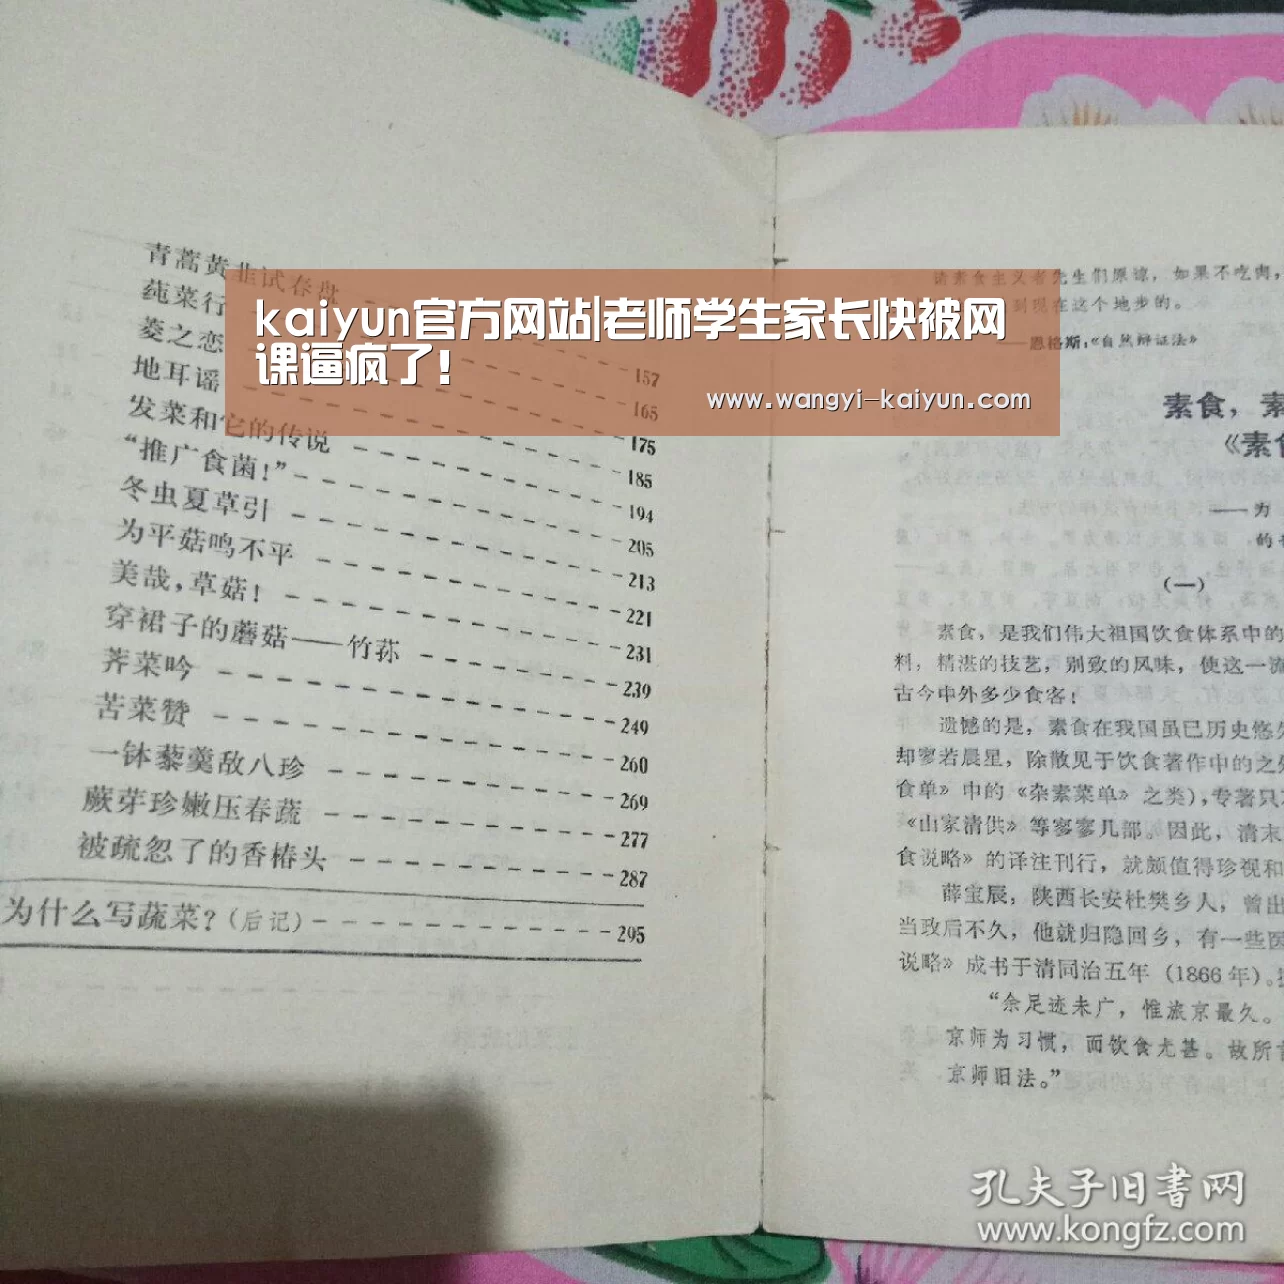 青蒿黄韭试春盘
莼菜行
菱之恋
地耳谣
发菜和它的传说
“推广食菌!”
冬虫夏草引
为平菇鸣不平
美哉,草菇!
穿裙子的蘑菇——竹荪
荠菜吟
苦菜赞
一钵藜羹敌八珍
蕨芽珍嫩压春蔬
被疏忽了的香椿头
为什么写蔬菜?(后记)
157
165
175
185
194
205
213
221
231
239
249
260
269
277
287
295
kaiyun官方网站|老师学生家长快被网
课逼疯了!
www.wangyi-kaiyun.com
素食主义者先生们原谅,如果不吃肉,
到现在这个地步的。
恩格斯:《自然辩证法》
素食,素
《素食
——为
的
(一)
素食,是我们伟大祖国饮食体系中的
料,精湛的技艺,别致的风味,使这一流
古今中外多少食客!
遗憾的是,素食在我国虽已历史悠久
却寥若晨星,除散见于饮食著作中的之外
食单》中的《杂素菜单》之类),专著只
《山家清供》等寥寥几部。因此,清末
食说略》的译注刊行,就颇值得珍视和
薛宝辰,陕西长安杜樊乡人,曾出
当政后不久,他就归隐回乡,有一些医
说略》成书于清同治五年(1866年)。
“余足迹未广,惟旅京最久。
京师为习惯,而饮食尤甚。故所言
京师旧法。”
孔夫子旧书网
www.kongfz.com